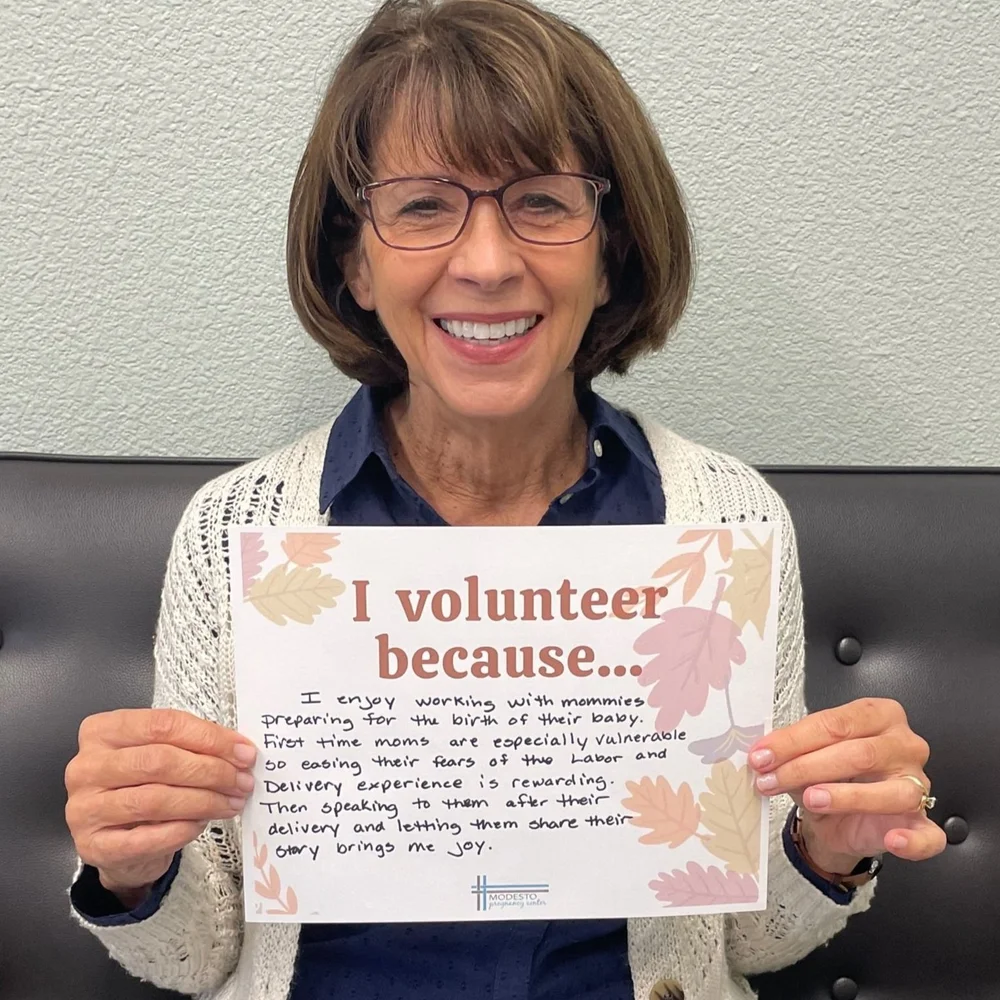 I volunteer
because...
I enjoy working with mommies
preparing for the birth of their baby.
First time moms are especially vulnerable
so easing their fears of the Labor and
Delivery experience is rewarding.
Then speaking to them after their
delivery and letting them share their
story brings me joy.
MODESTO
pregnancy center